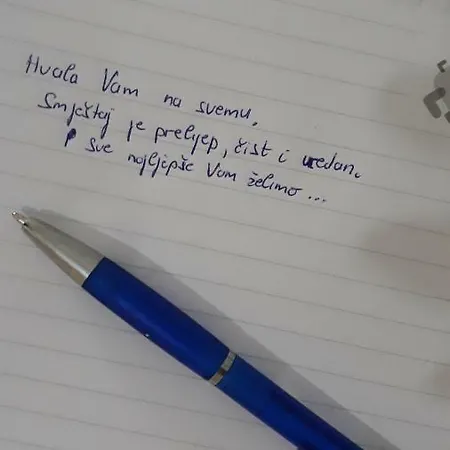 Hvala Vam na svemu.
Smještaj je prelijep, čist i uredan.
I sve najljepše Vam želimo...